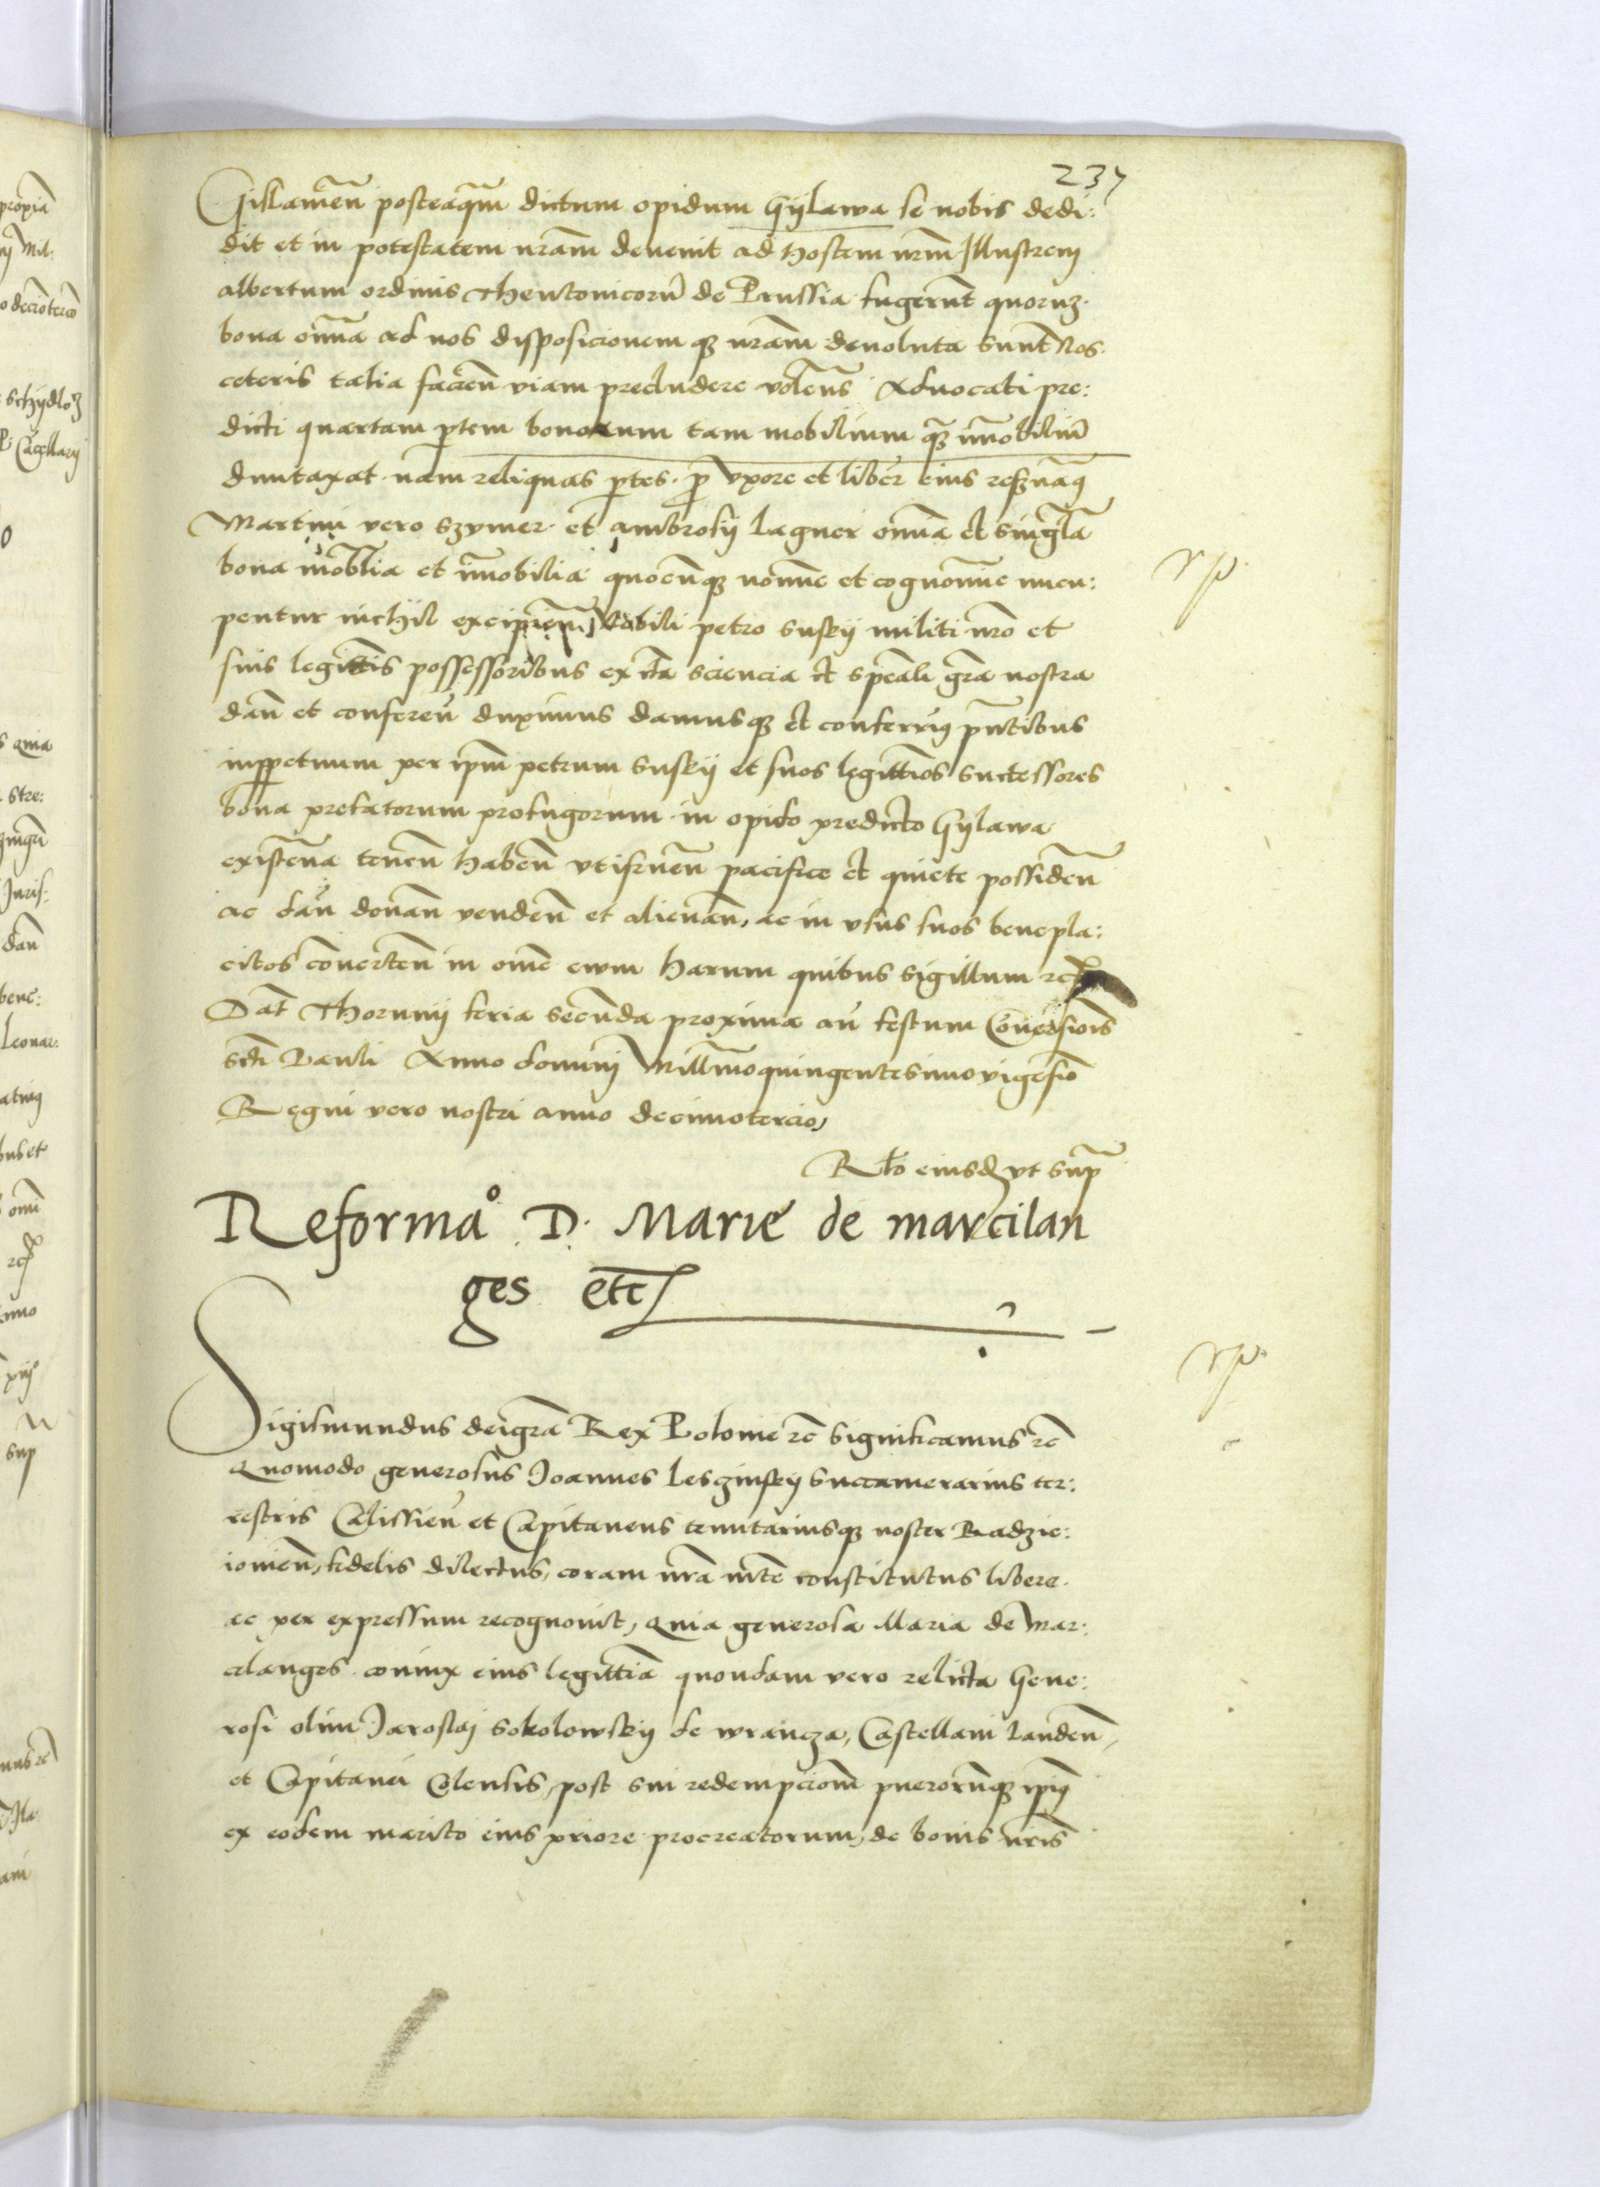 237
Gislamen̄ posteaq̄m dictum opidum Gÿlawa se nobis dedi:
dit et in potestatem nr̄am devenit ad hostem nr̄m Illustrem
albertum ordinis Theutonicorū de Prussia fugerūt quorum
bona om̄ia ad nos disposicionem q3 nr̄am devoluta sunt Nos
ceteris talia facien̄ viam precludere volen̄s Advocati pre:
dicti quartam p̄tem bonorum tam mobilium q̄3 īmobiliū
duntaxat nam reliquas p̄tes p̄ vxore et liber̄ eius
Martini vero Szymer et ambrosÿ Lagner om̄ia et sinḡla
bona mob̄lia et īmobilia quocūq3 nomine et cognomine nūcu:
pentur nichil excipien̄ Nobili petro suskÿ militi nr̄o et
suis legittīs possessoribus ex c̄ta sciencia et sp̄eali gr̄a nostra
dan̄ et conferen̄ duximus damusq3 et conferim9 p̄ntibus
inp̄petuum per ip̄m petrum suskÿ et suos legittīos successores
bona prefatorum profugorum in opido predicto Gÿlawa
existen̄a tenen̄ haben̄ vtifruen̄ pacifice et quiete possiden̄
ac dan̄ donan̄ venden̄ et alienan̄, ac in vsus suos benepla:
citos cōverten̄ in om̄e ewm Harum quibus sigillum
Dat̄ Thorunÿ feria secūda proxima an̄ festum Cōversionis
sc̄ti Pauli Anno domini Mill̄mo quingentesimo vigesīo
Regni vero nostri anno decimotercio,
Rl̄to eiusd̄ vt sup̄
Reformao D. Marie de marcilan
ges etc
Sigismundus dei gr̄a Rex Polonie 2c̄ Significamus 2c̄
Quomodo generosus Joannes Lesczinskÿ succamerarius ter:
restris Calissien̄ et Capitaneus tenutariusq3 noster Radzie:
iovien̄, fidelis dilectus, coram nr̄a m̄te constitutus libere
ac per expressum recognovit, Quia generosa Maria de Mar:
cilanges coniux eius legittīa quondam vero relicta Gene:
rosi olim Jaroslai Sokolowskÿ de wrancza, Castellani Landen̄,
et Capitanei Colensis, post sui redempcionem puerorūq3 ip̄i9
ex eodem marito eius priore procreatorum, de bonis nr̄is